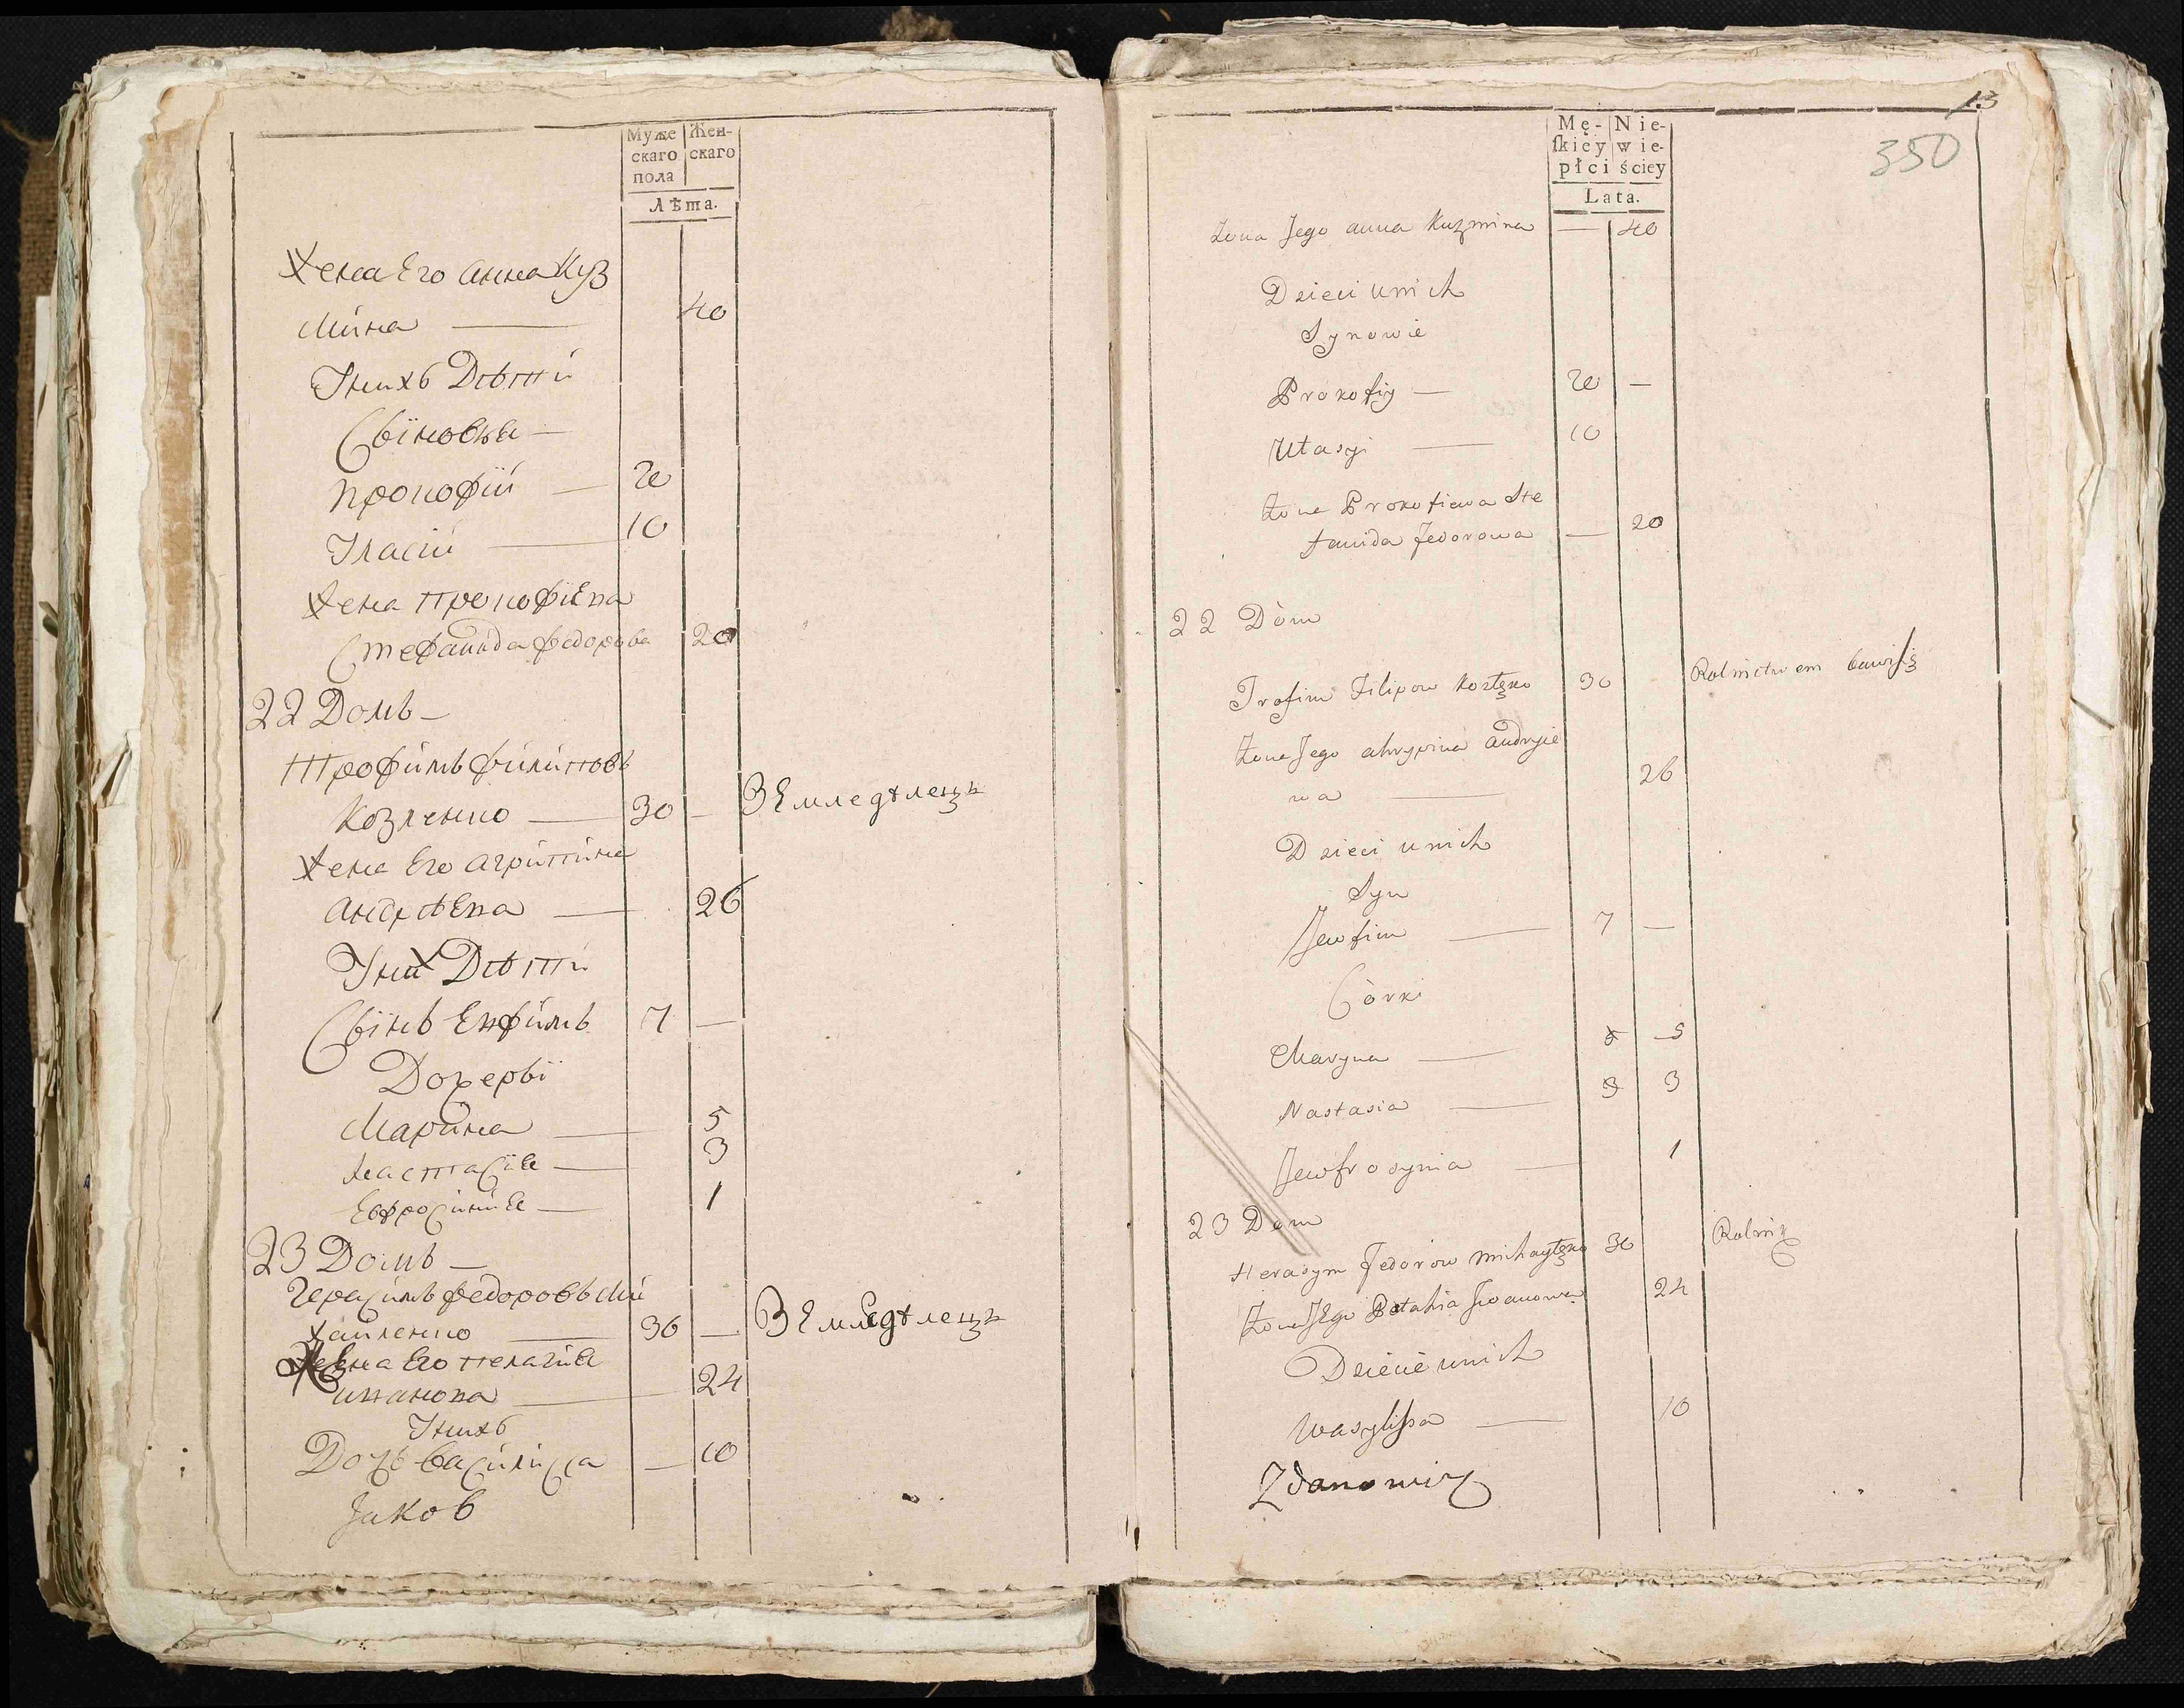 Муже
скаго
пола
Жен-
скаго
Лѣта.
Жена Его анна Куз
мина — 40
Унихъ Дѣти
Сыновья —
прокофій — 20
Уласій — 10
Жена прокофіева
Стефанида федорова 20
22 Домъ —
Трофимъ филиповъ
козленко — 30 — Земледѣлецъ
Жена Его агрипина
андрѣева — 26
Уних Дѣти
Сынъ Евфимъ 7 —
Дочеры
Марина — 5
настасия — 3
Евфросиния — 1
23 Домъ —
Герасимъ федоровъ Ми
хайленко — 30 — Земледѣлецъ
Жена Его пелагия
иванова — 24
Унихъ
Дочь василисса — 10
Jakob
13
350
Mę-
ſkiey
płci
Nie-
wie-
ściey
Lata.
Żona Jego anna Kuzmina — 40
Dzieci unich
Synowie
Prokofiy — 20 —
Ułasyi — 10
Żona Prokofiewa Ste
fanida Fedorowa — 20
22 Dòm
Trofim Filipow Kozłęko 30 Rolnictwem bawiſię
Żona Jego ahrypina andryie
wa — 26
Dzieci unich
Syn
Jewfim — 7 —
Córki
Maryna — 5 5
Nastasia — 3 3
Jewfrosynia — 1
23 Dom
Herasym Fedorow michayłęko 30 Rolnik
Żona JEgo Pełahia Iwanowa 24
Dziecie unich
Wasylissa — 10
Zdanowicz